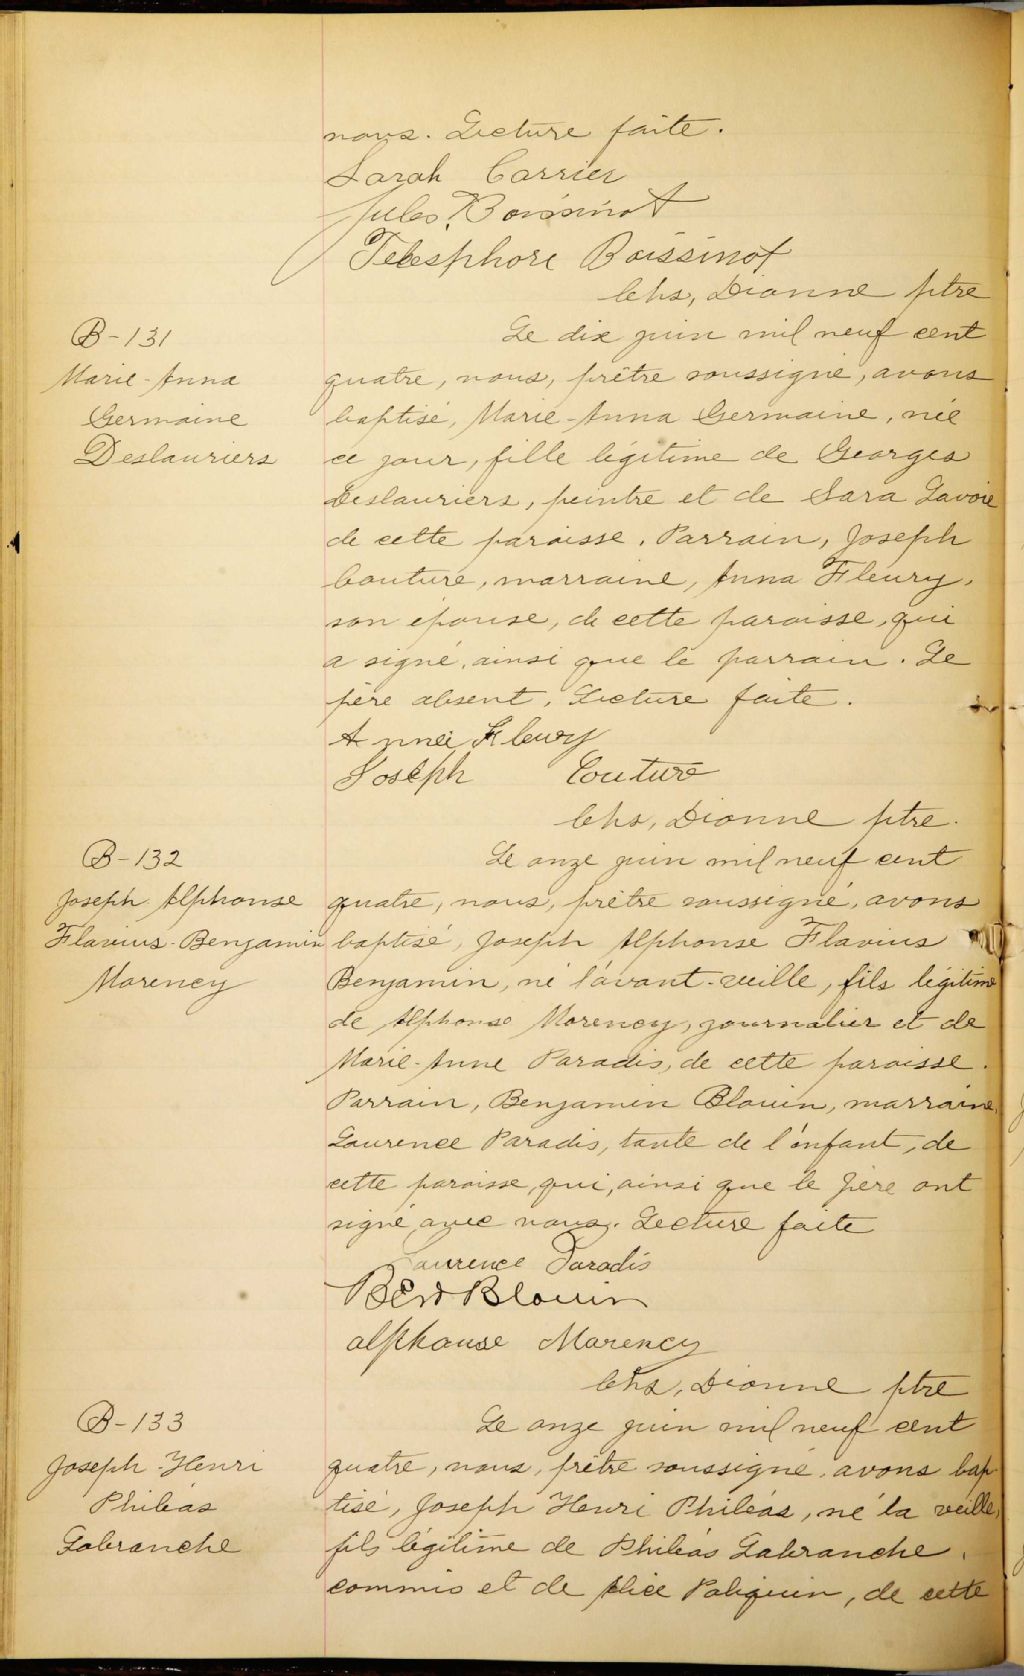 nous. Lecture faite.
Sarah Carrier
Jules Boissinot
Telesphore Boissinot
Chs, Dionne ptre
B-131
Marie-Anna
Germaine
Deslauriers
Le dix juin mil neuf cent
quatre, nous, prêtre soussigné, avons
baptisé, Marie-Anna Germaine, née
ce jour, fille légitime de Georges
Deslauriers, peintre et de Sara Lavoie
de cette paroisse. Parrain, Joseph
Couture, marraine, Anna Fleury,
son épouse, de cette paroisse, qui
a signé, ainsi que le parrain. Le
père absent. Lecture faite.
Anna Fleury
Joseph Couture
Chs, Dionne ptre.
B-132
Joseph Alphonse
Flavius-Benjamin
Morency
Le onze juin mil neuf cent
quatre, nous, prêtre soussigné, avons
baptisé, Joseph Alphonse Flavius
Benjamin, né l'avant-veille, fils légitime
de Alphonse Morency, journalier et de
Marie-Anne Paradis, de cette paroisse.
Parrain, Benjamin Blouin, marraine,
Laurence Paradis, tante de l'enfant, de
cette paroisse, qui, ainsi que le père ont
signé avec nous. Lecture faite
Laurence Paradis
Ben Blouin
alphonse Morency
Chs, Dionne ptre
B-133
Joseph-Henri
Philéas
Labranche
Le onze juin mil neuf cent
quatre, nous, prêtre soussigné, avons bap
tisé, Joseph Henri Philéas, né la veille,
fils légitime de Philéas Labranche,
commis et de Alice Poliquin, de cette